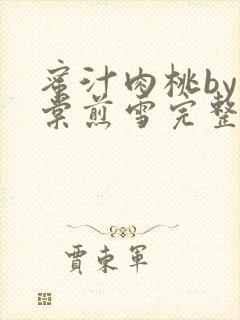 蜜汁肉桃by
棠煎雪完整
贾东军